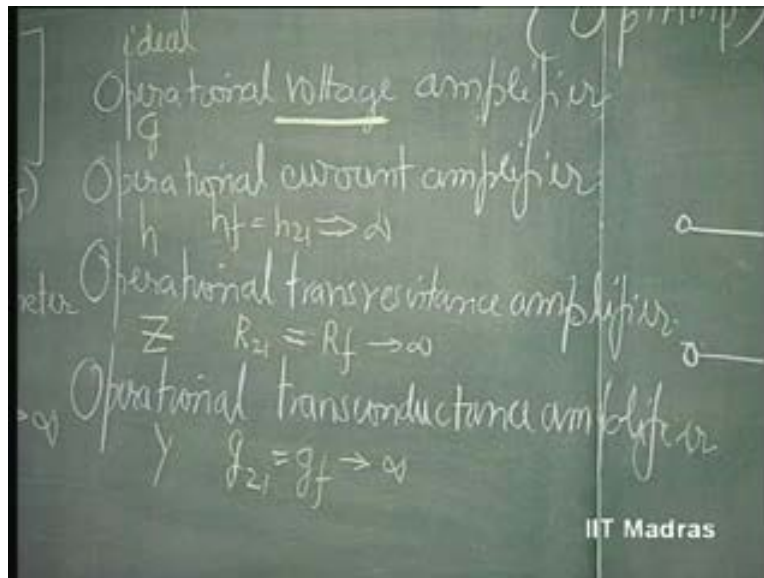 ideal
(Op Amp)
Operational voltage amplifier
g
Operational current amplifier
h hf = h21 ⇒ ∞
Operational transresistance amplifier
Z R21 = Rf → ∞
Operational transconductance amplifier
Y g21 = gf → ∞
IIT Madras